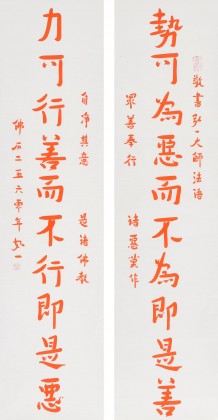 敬書弘一大師法語
勢可為惡而不為即是善
眾善奉行 諸惡莫作
自净其意 是諸佛教
力可行善而不行即是惡
佛历二五六零年